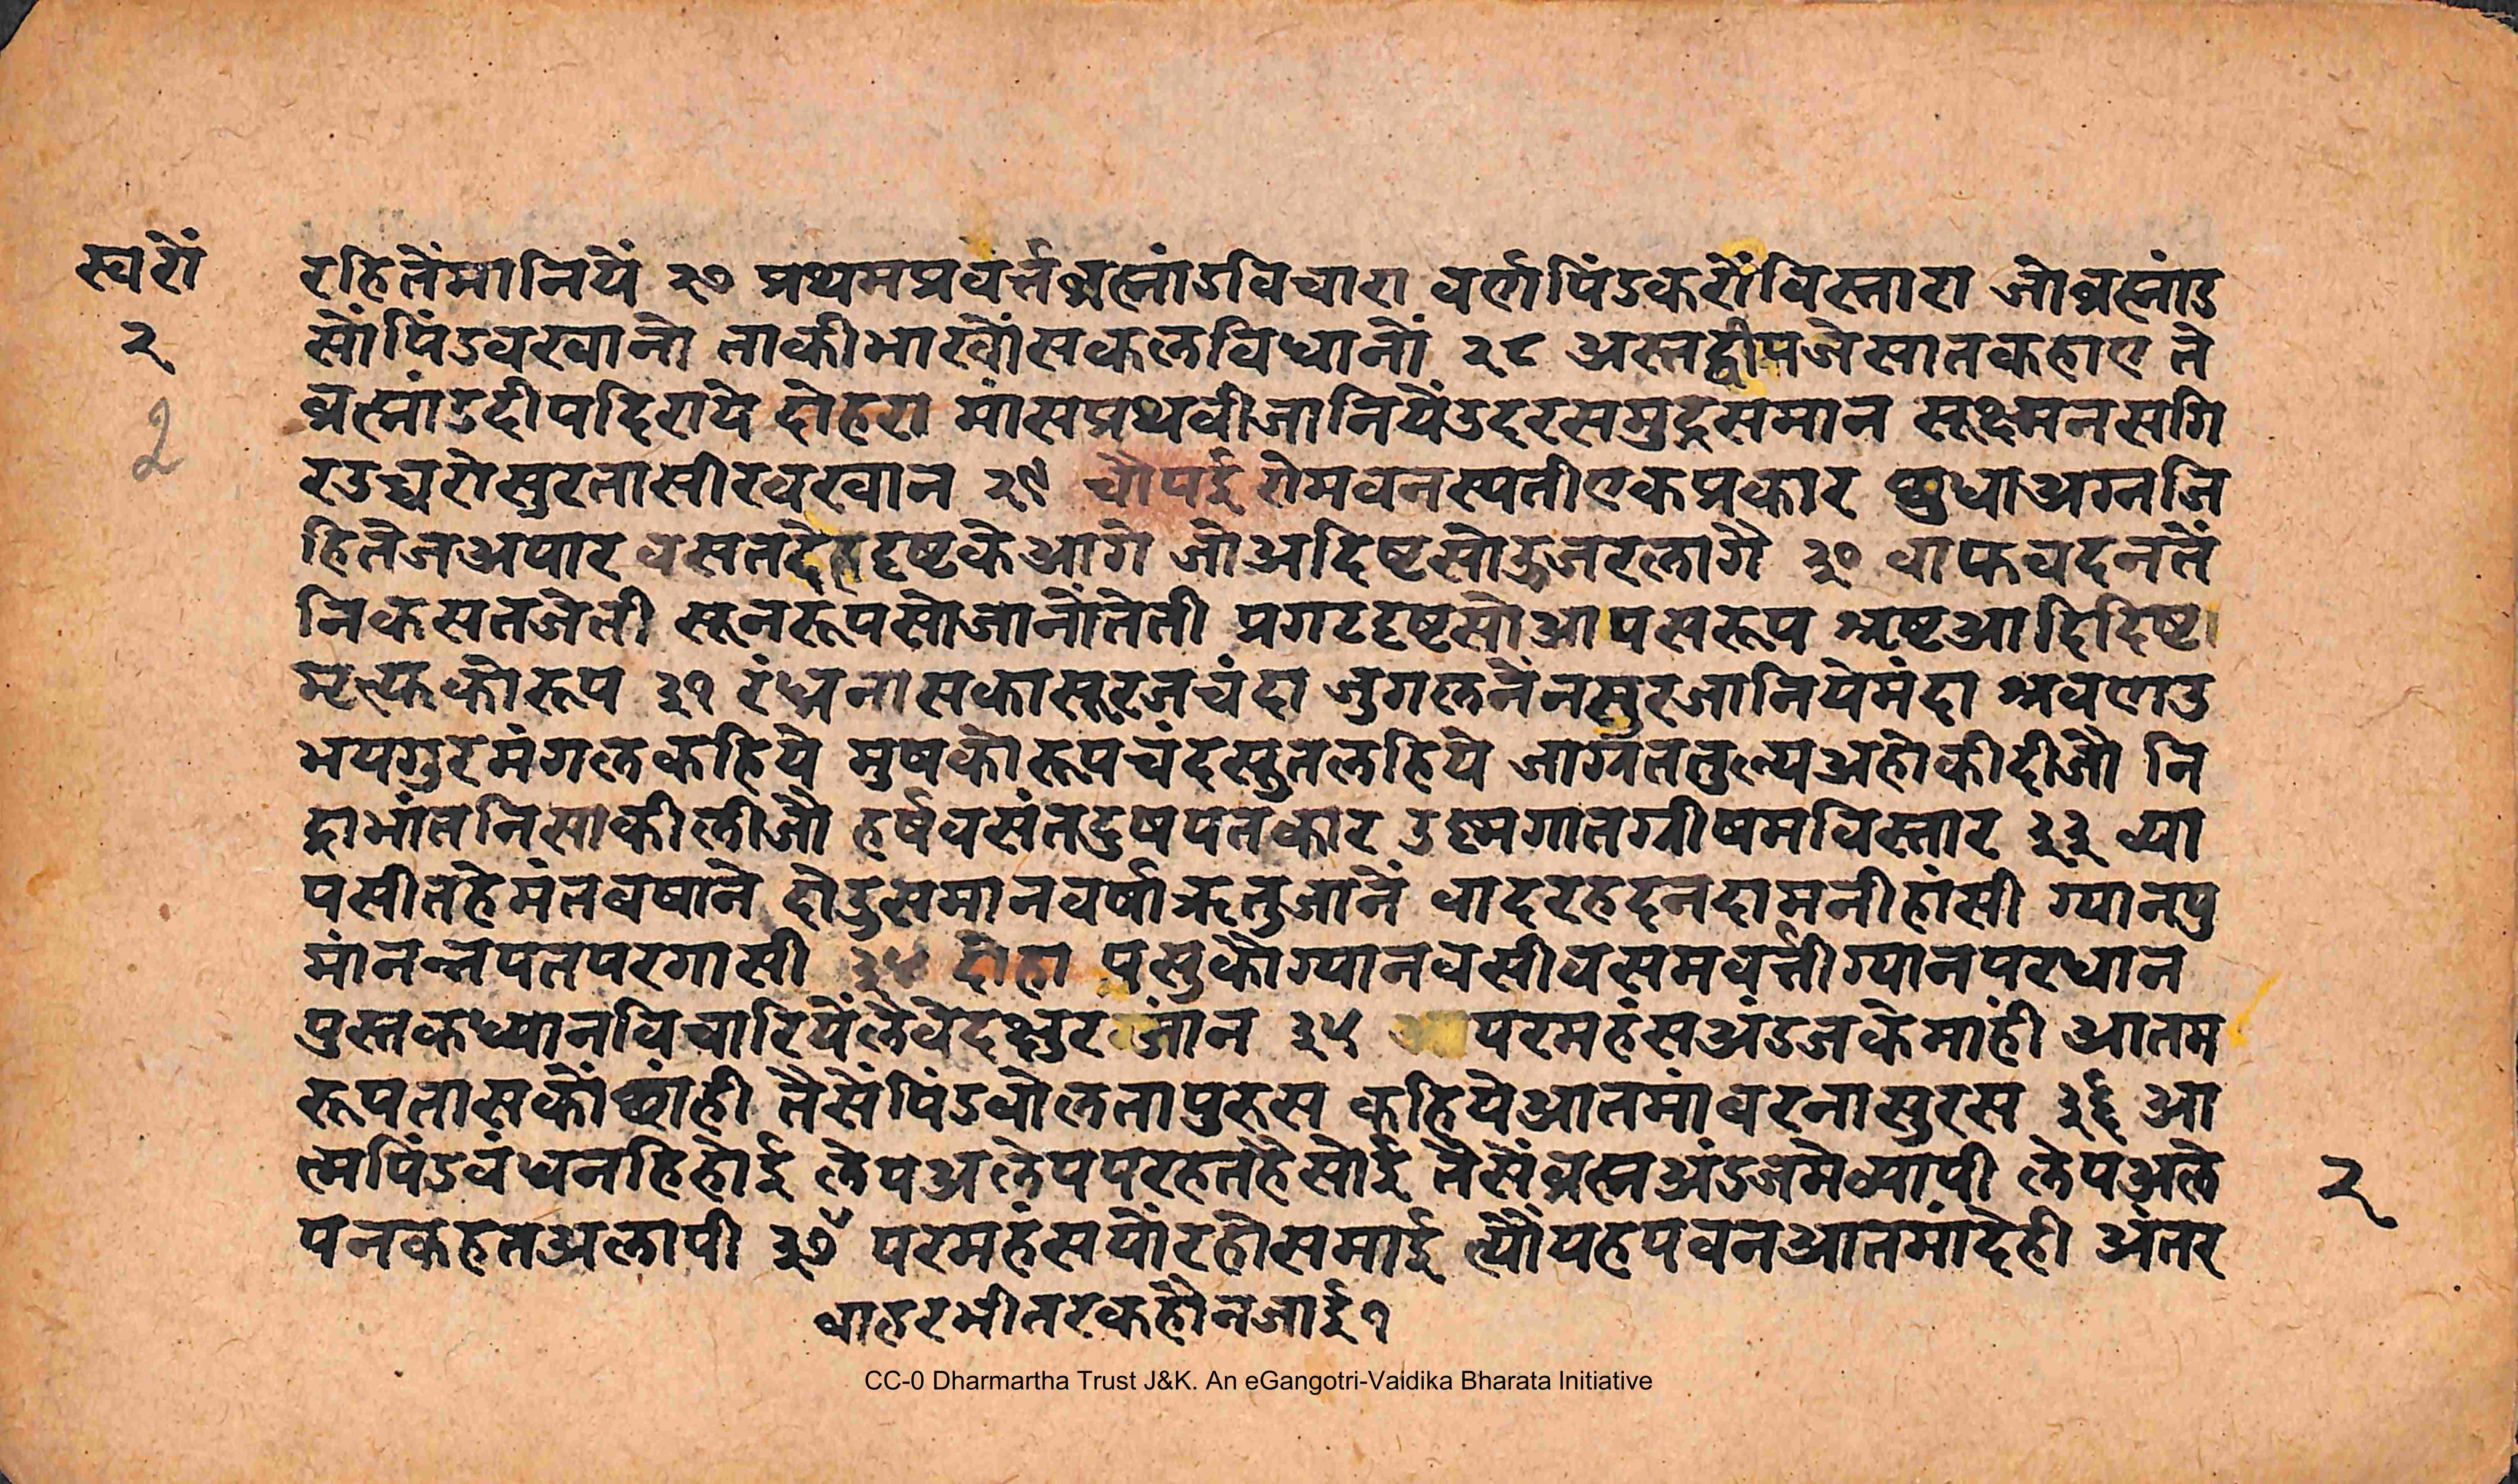 स्वरों
२
2
रहितेंमानियें २७ प्रथमप्रवर्त्तब्रह्मांडविचारा वर्णपिंडकरोंविस्तारा जोब्रह्मांड
सोंपिंडवखानो ताकीभाखोंसकलविधानों २८ अस्तद्वीपजेसातकहाए ते
ब्रह्मांडदीपदिराये दोहरा मांसप्रथवीजानियेंउदरसमुद्रसमान सूक्ष्मनसगि
रउच्चरोसुरतासीरवखान २९ चौपई रोमवनस्पतीएकप्रकार क्षुधाअग्नजि
हितेजअपार वसतदेहदृष्टकेआगे जोअदिष्टसोऊजरलागै ३० वाफवदनतें
निकसतजेती सूनरूपसोजानोंतेती प्रगटदृष्टसोआपसरूप भ्रष्टआदिदिष्ट
मृत्यकोरूप ३१ रंध्रनासकासूरजचंदा जुगलनेंनसुरजानियेमंदा श्रवणउ
भयगुरमंगलकहिये मुषकोरूपचंदसुतलहिये जाग्रततुल्यअहोकीदीजौ नि
द्राभांतनिसाकीलीजौ हर्षवसंतदुषपतकार उश्मगातग्रीषमविस्तार ३३ व्या
पसीतहेमंतवषाने होइसमानवर्षाऋतुजानें वादरहदनदामनीहांसी ग्यानपु
मांनन्नपतपरगासी ३४ दोहा पसुकोग्यानवसीवसमवर्त्तीग्यानपरधान
पुस्तकध्यानविचारियेंलैवेदक्षुर जांन ३५ परमहंसअंडजकेमांही आतम
रूपतासकोंछांही तैसेंपिंडवोलतापुरुस कहियेआतमांवरनासुरस ३६ आ
त्मपिंडवंधनहिहोई लेपअलेपपरहतहैसोई तैसेंब्रह्मअंडजमेव्यापी लेपअले
पनकहतअलापी ३७ परमहंसयोंरहौसमाई त्योंयहपवनआतमांदेही अंतर
वाहरभीतरकहौनजाई १
२
CC-0 Dharmartha Trust J&K. An eGangotri-Vaidika Bharata Initiative